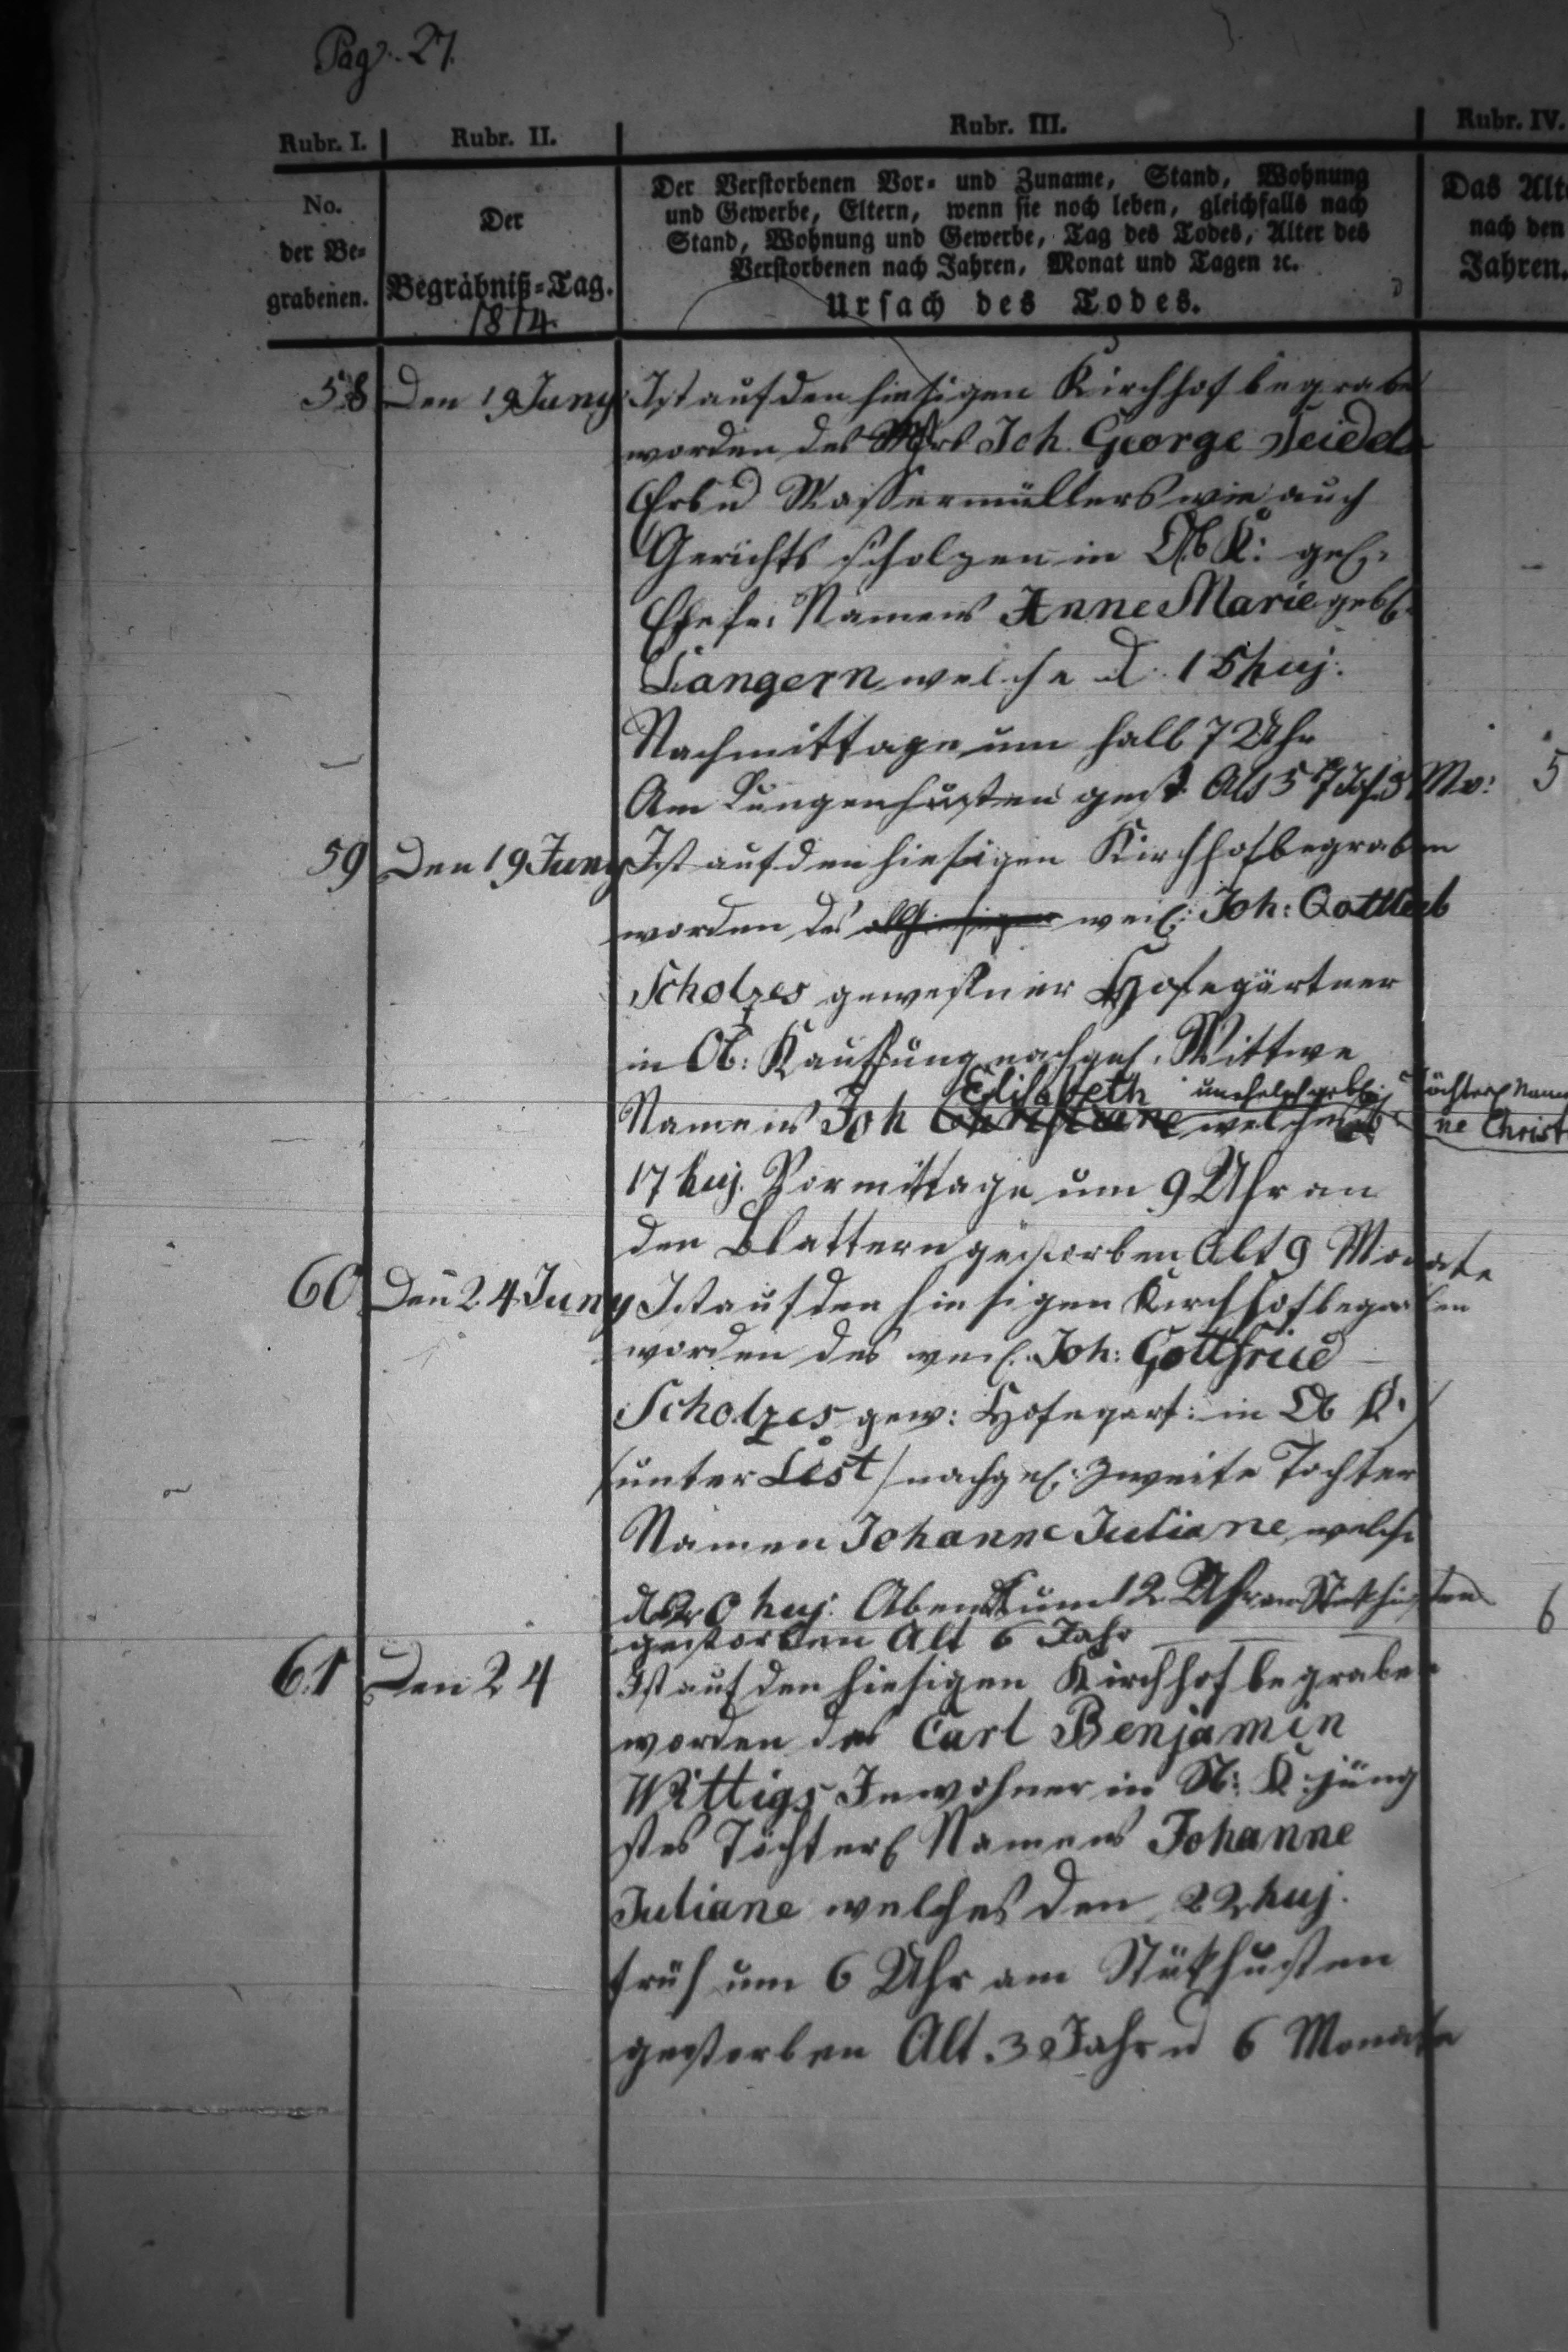 Pag. 27.
Rubr. I. Rubr. II. Rubr. III. Rubr. IV.
No. der Be-grabenen.
Der Begräbniß-Tag. 1814
Der Verstorbenen Vor- und Zuname, Stand, Wohnung
und Gewerbe, Eltern, wenn sie noch leben, gleichfalls nach
Stand, Wohnung und Gewerbe, Tag des Todes, Alter des
Verstorbenen nach Jahren, Monat und Tagen ꝛc.
Ursach des Todes.
Das Alt
nach den
Jahren.
58 Den 19 Juny Ist auf den hiesigen Kirchhof begrabe
worden des Joh. George Seidel
Erb u Wassermüllers wie auch
Gerichts scholzen in Ob K: gel.
Ehefr. Namens Anne Marie gebl.
Langern welche d. 15 huj.
Nachmittage um halb 7 Uhr
Am Lungenhusten gest. Alt 57 Jh 5 Mo: 5
59 Den 19 Juny Ist auf den hiesigen Kirchhof begraben
worden des weil: Joh: Gottlieb
Scholzes gewesner Hofegärtner
in Ob: Kauffung nachgel. Wittwe
Elisabeth unehelich Töchterl Name
Namens Joh Christiane welches ne Christ
17 huj. Vormittage um 9 Uhr an
den Blattern gestorben Alt 9 Monate
60 Den 24 Juny Ist auf den hiesigen Kirchhof begraben
worden des weil. Joh: Gottfried
Scholzes gew: Hofegart: in Ob K:
/unter Lest/ nachgel: zweite Tochter
Namen Johanne Juliane welche
d 20 huj. Abends um 12 Uhr am Stikhusten 6
gestorben Alt 6 Jahr
61 Den 24 Ist auf den hiesigen Kirchhof begraben
worden des Carl Benjamin
Wittigs Inwohner in K: jüng
stes Töchterl Namens Johanne
Juliane welches den 22 huj.
früh um 6 Uhr am Stikhusten
gestorben Alt. 3 Jahr u 6 Monate